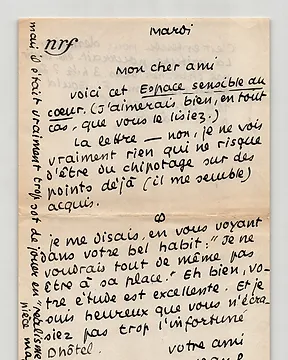 nrf
Mardi
Mon cher ami
voici cet Espace sensible au
cœur. (J'aimerais, bien, en tout
cas, que vous le lisiez.)
La lettre — non, je ne vois
vraiment rien qui ne risque
d'être du chipotage sur des
points déjà (il me semble)
acquis.
je me disais, en vous voyant
dans votre bel habit: "Je ne
voudrais tout de même pas
être à sa place." Eh bien, vo-
tre étude est excellente. Et je
suis heureux que vous n'écra-
siez pas trop l'infortuné
Dhôtel.
votre ami
mais il s'était vraiment trop sot de jouer en "réalisme